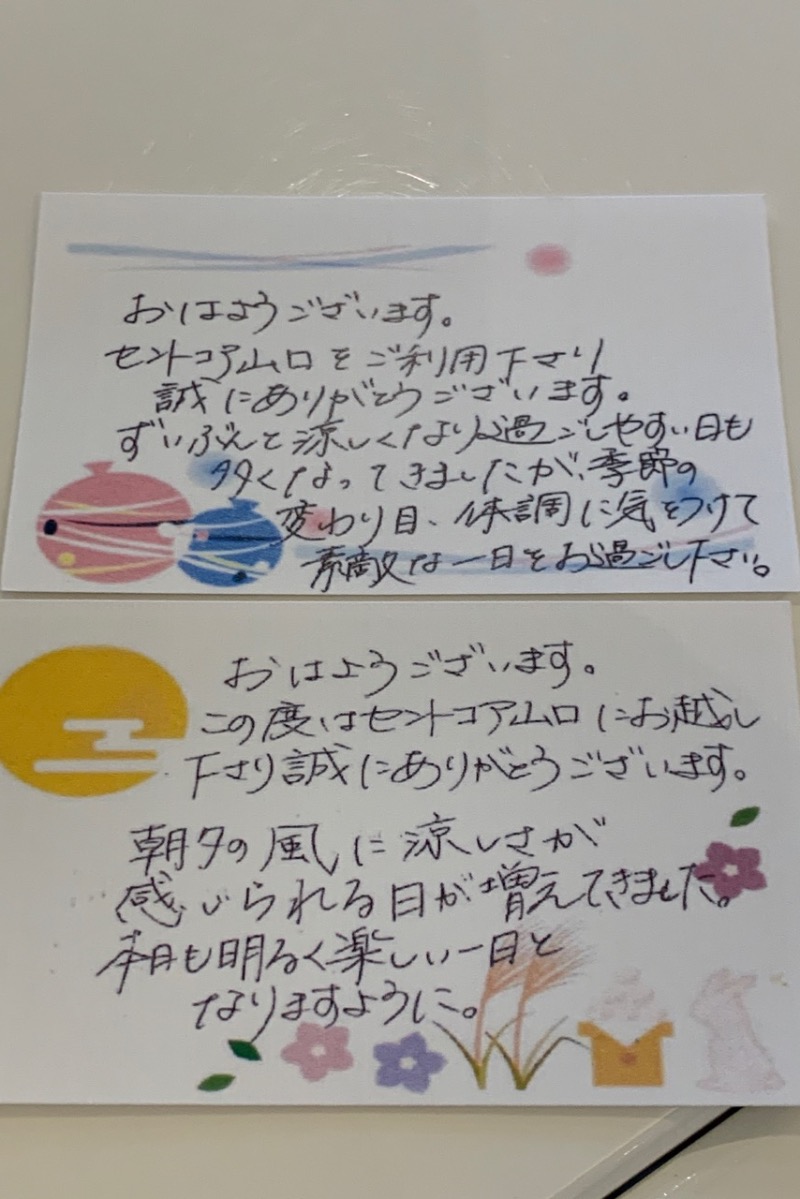 おはようございます。
セントコア山口をご利用下さり
誠にありがとうございます。
ずいぶんと涼しくなり過ごしやすい日も
多くなってきましたが、季節の
変わり目、体調に気をつけて
素敵な一日をお過ごし下さい。
おはようございます。
この度はセントコア山口にお越し
下さり誠にありがとうございます。
朝夕の風に涼しさが
感じられる日が増えてきました。
本日も明るく楽しい一日と
なりますように。